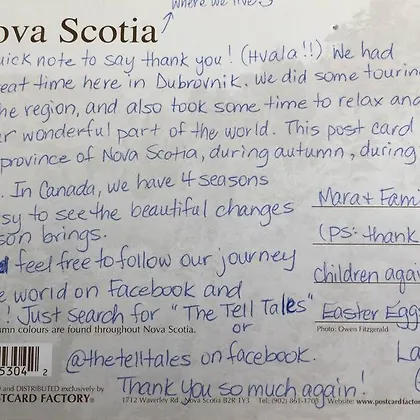 where we live
ova Scotia
uick note to say thank you! (Hvala!!) We had
reat time here in Dubrovnik. We did some touring
he region, and also took some time to relax and
r wonderful part of the world. This post card
province of Nova Scotia, during autumn, during
. In Canada, we have 4 seasons
sy to see the beautiful changes
son brings.
Mara & Fam
(ps: thank
children again
Easter Egg
feel free to follow our journey
e world on Facebook and
! Just search for "The Tell Tales"
or
umn colours are found throughout Nova Scotia.
Photo: Owen Fitzgerald
@thetelltales on facebook.
Thank you so much again!
La
5304 2
and DISTRIBUTED exclusively by
STCARD FACTORY®
1712 Waverley Rd Nova Scotia B2R 1Y3 Tel: (902) 861-1703 Website: www.postcardfactor